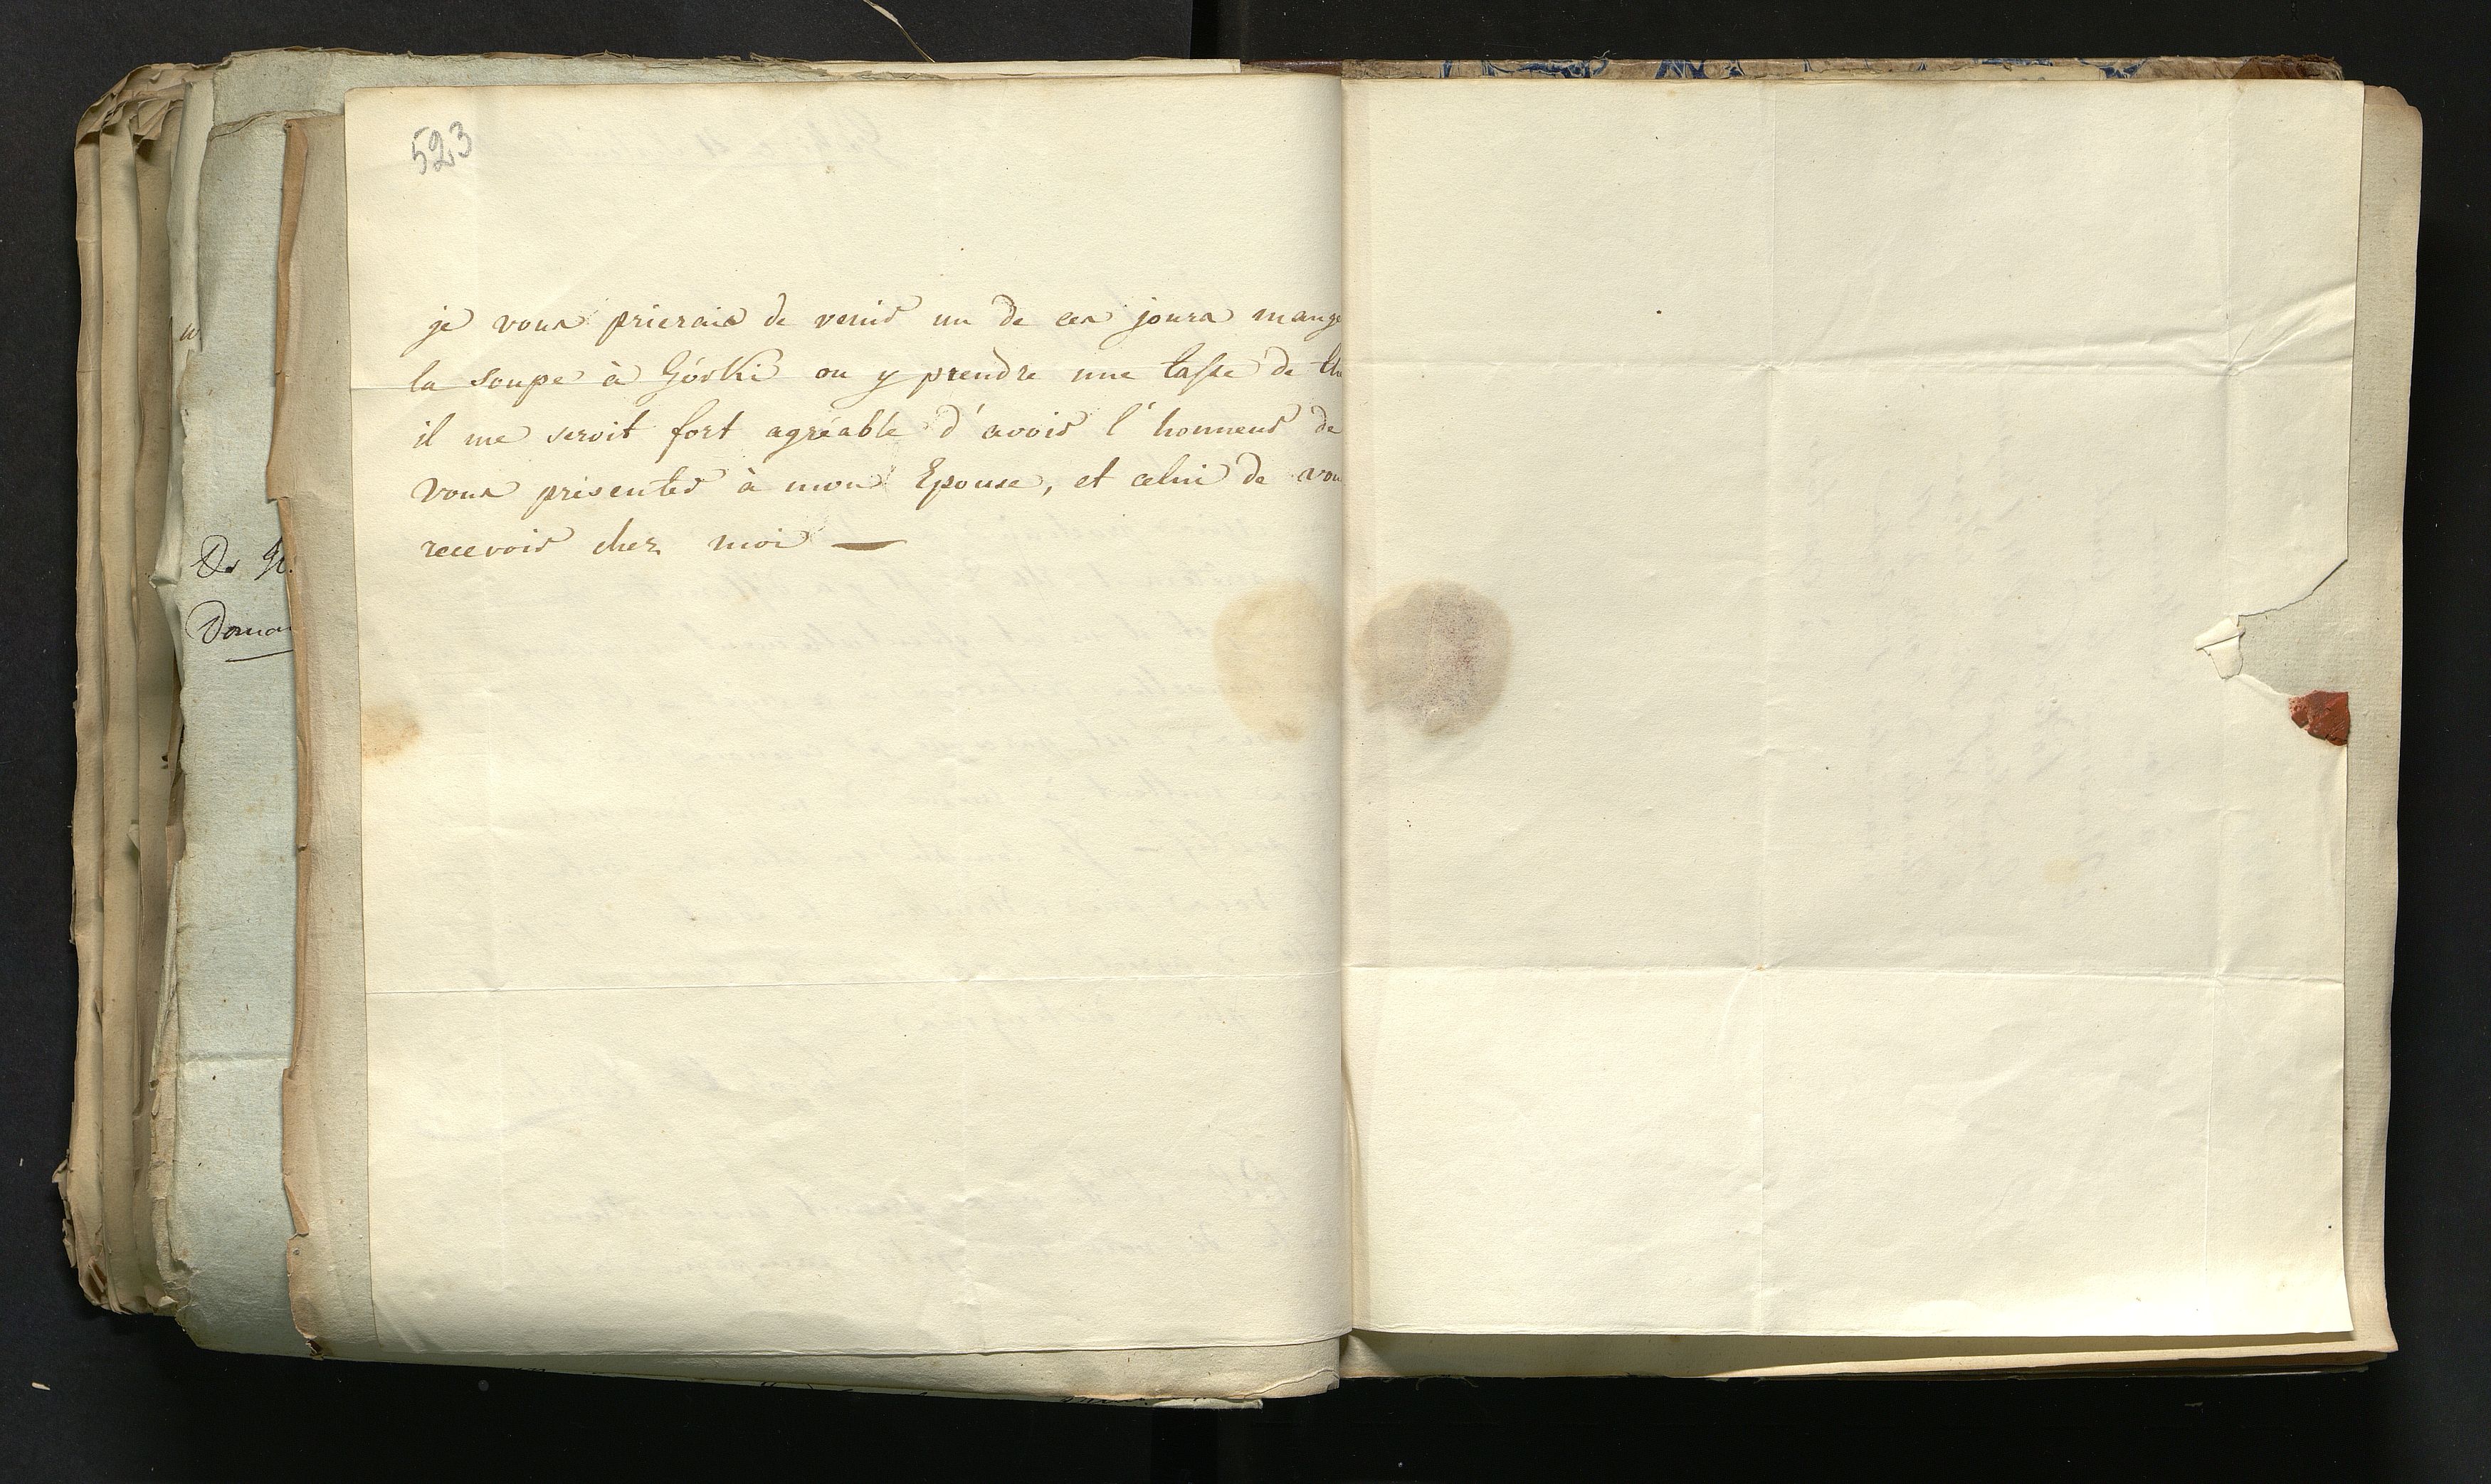 523
je vous prierais de venir un de ces jours mange
la soupe à Górki ou y prendre une tasse de thé
il me seroit fort agréable d'avoir l'honneur de
vous présenter à mon Epouse, et celui de vou
recevoir chez moi —
De